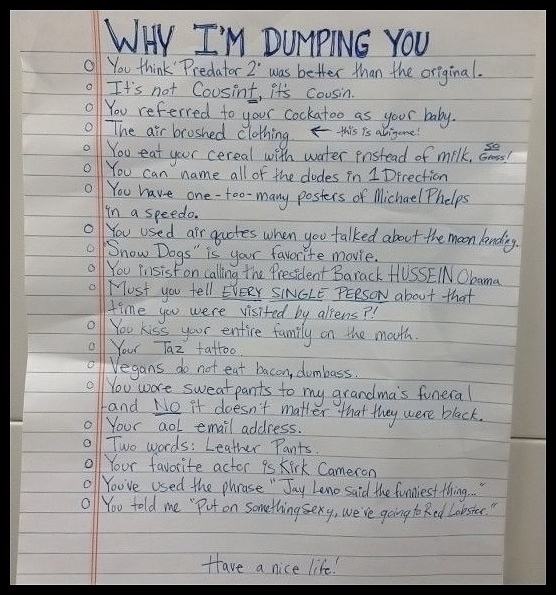 WHY I'M DUMPING YOU
You think "Predator 2" was better than the original.
It's not Cousint, it's cousin.
You referred to your cockatoo as your baby.
The air brushed clothing ← this is a bigone!
You eat your cereal with water instead of milk. SO Gross!
You can name all of the dudes in 1 Direction
You have one-too-many posters of Michael Phelps
in a speedo.
You used air quotes when you talked about the moon landing.
"Snow Dogs" is your favorite movie.
You insist on calling the President Barack HUSSEIN Obama
Must you tell EVERY SINGLE PERSON about that
time you were visited by aliens?!
You kiss your entire family on the mouth.
Your Taz tattoo.
Vegans do not eat bacon, dumbass.
You wore sweatpants to my grandma's funeral
and NO it doesn't matter that they were black.
Your aol email address.
Two words: Leather Pants.
Your favorite actor is Kirk Cameron
You've used the phrase "Jay Leno said the funniest thing..."
You told me "Put on something sexy, we're going to Red Lobster."
Have a nice life!